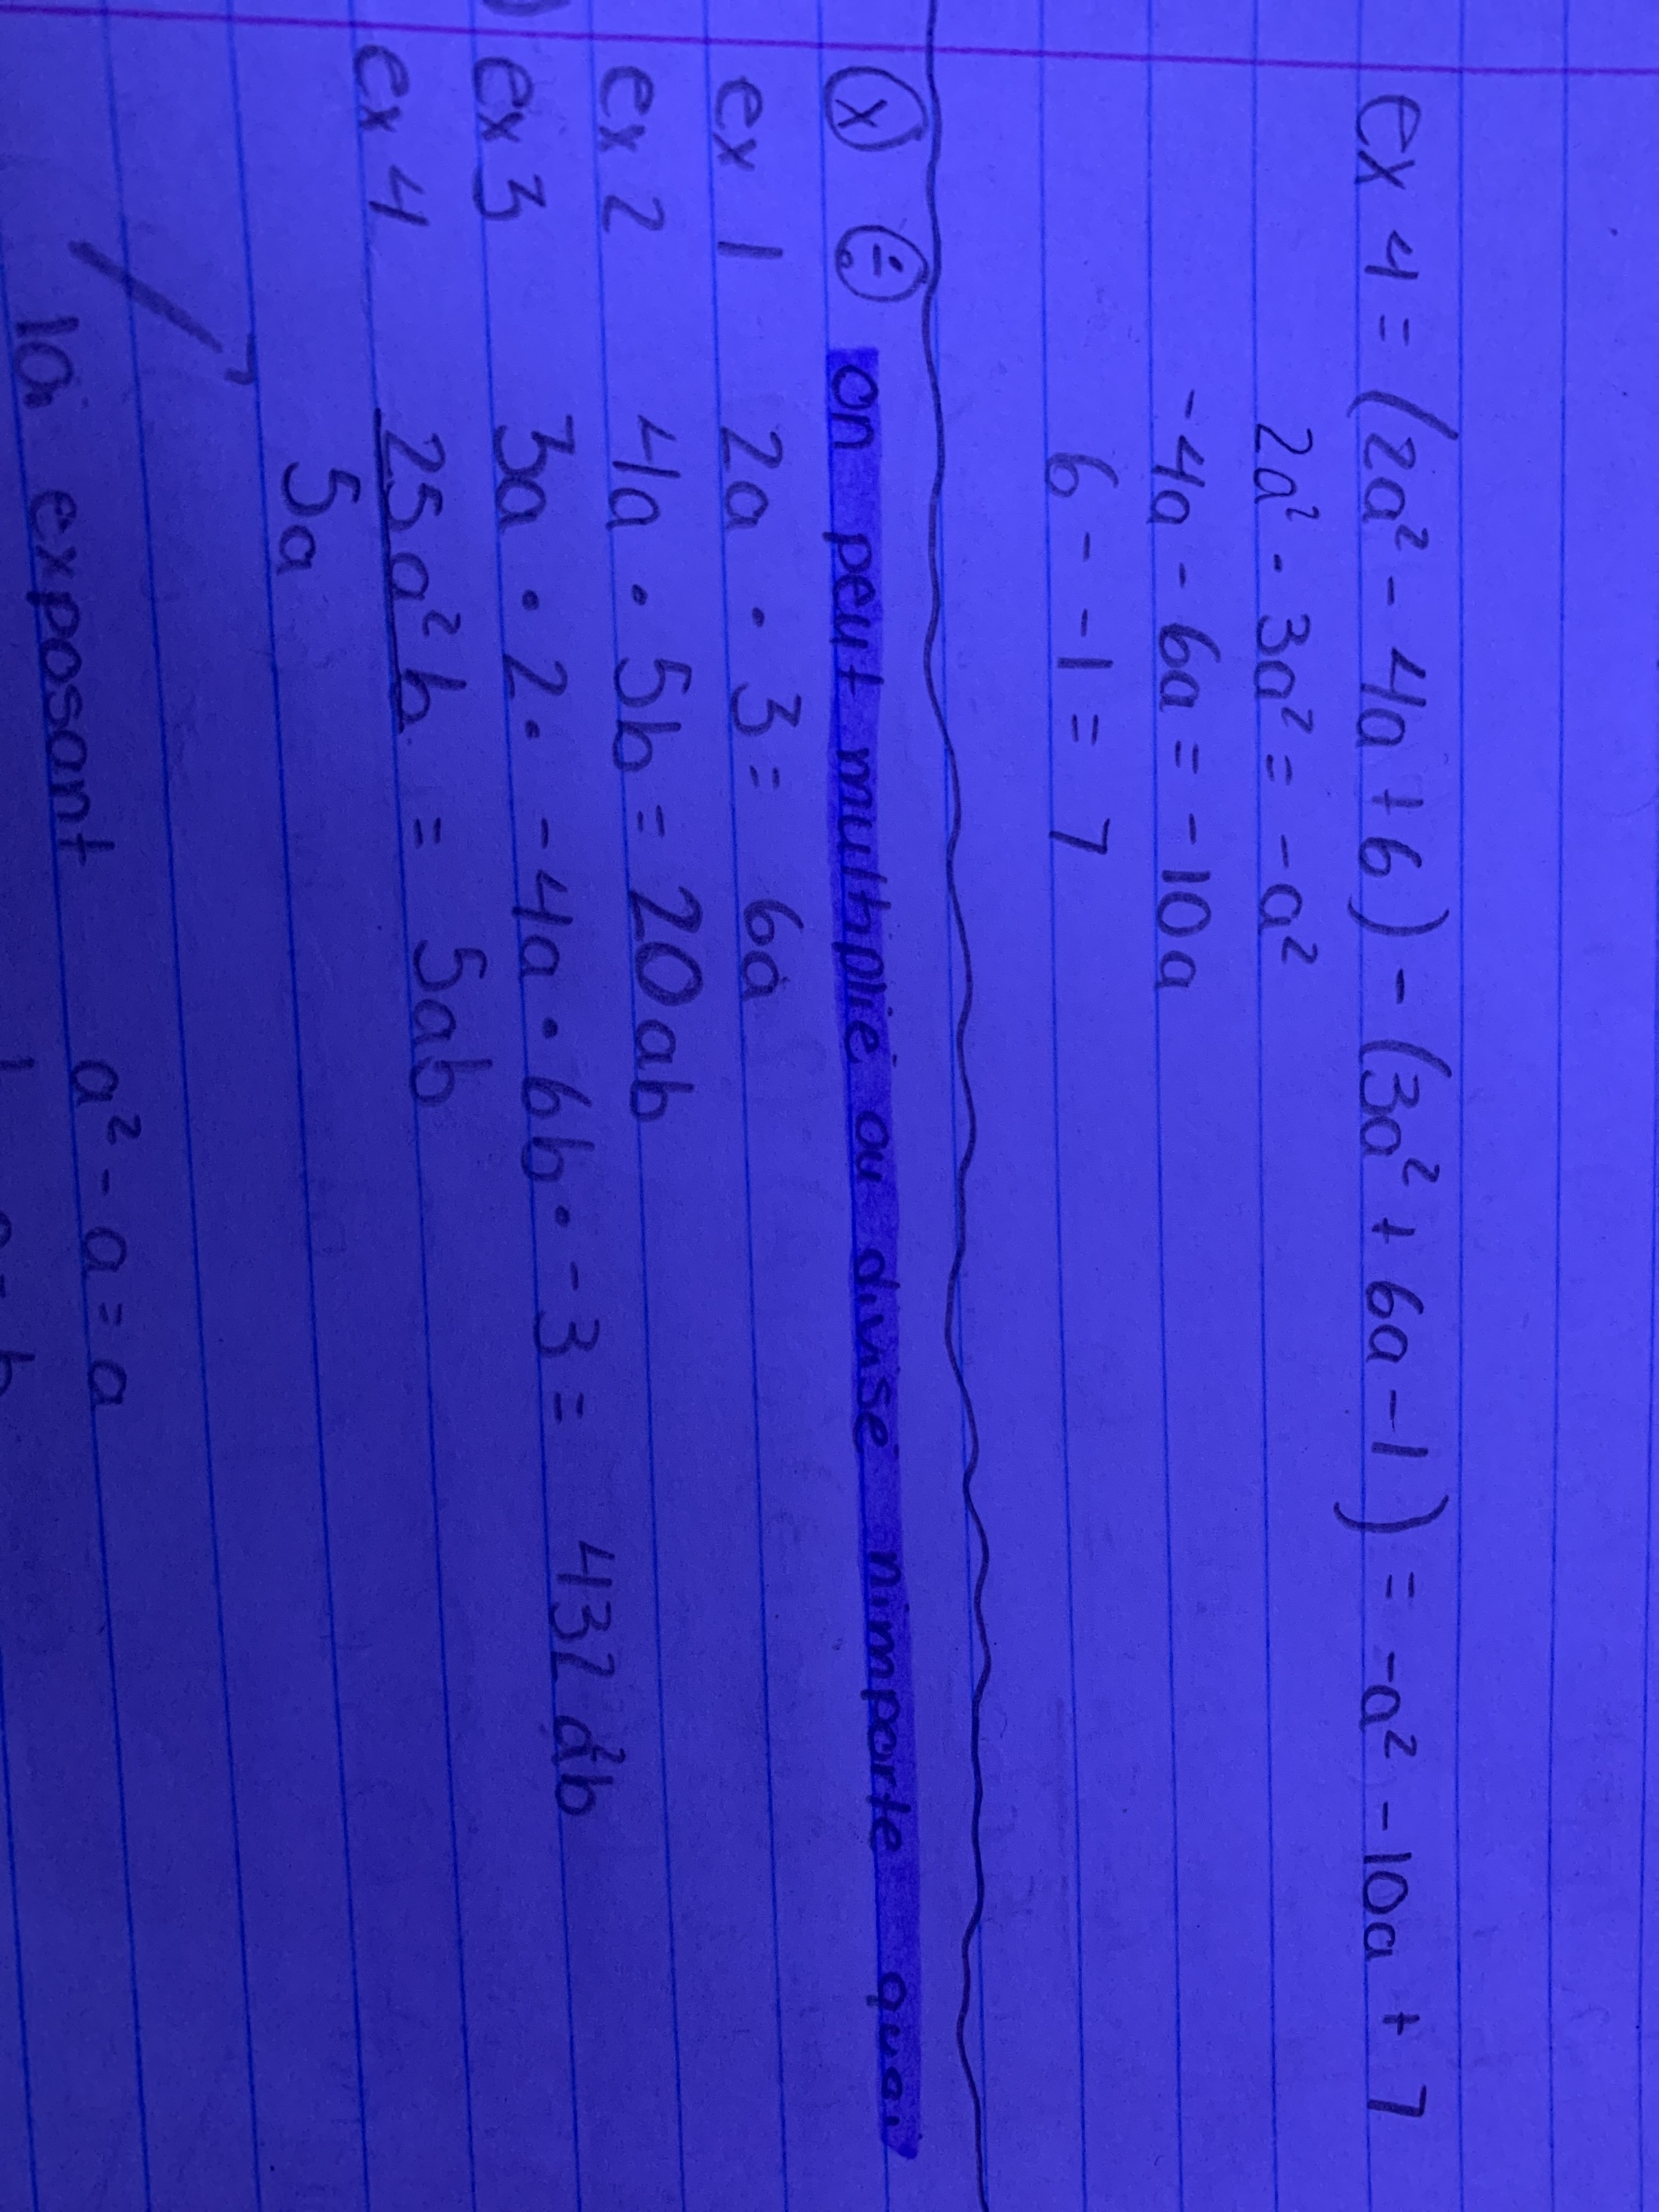 ex 4 = (2a² - 4a + 6) - (3a² + 6a - 1) = -a² - 10a + 7
2a² - 3a² = -a²
-4a - 6a = -10a
6 - -1 = 7
ⓧ ÷ on peut multiplie ou divise nimporte quoi
ex 1 2a · 3 = 6a
ex 2 4a · 5b = 20ab
ex 3 3a · 2 · -4a · 6b · -3 = 432a²b
ex 4 25a²b = 5ab
5a
loi exposant a² - a = a